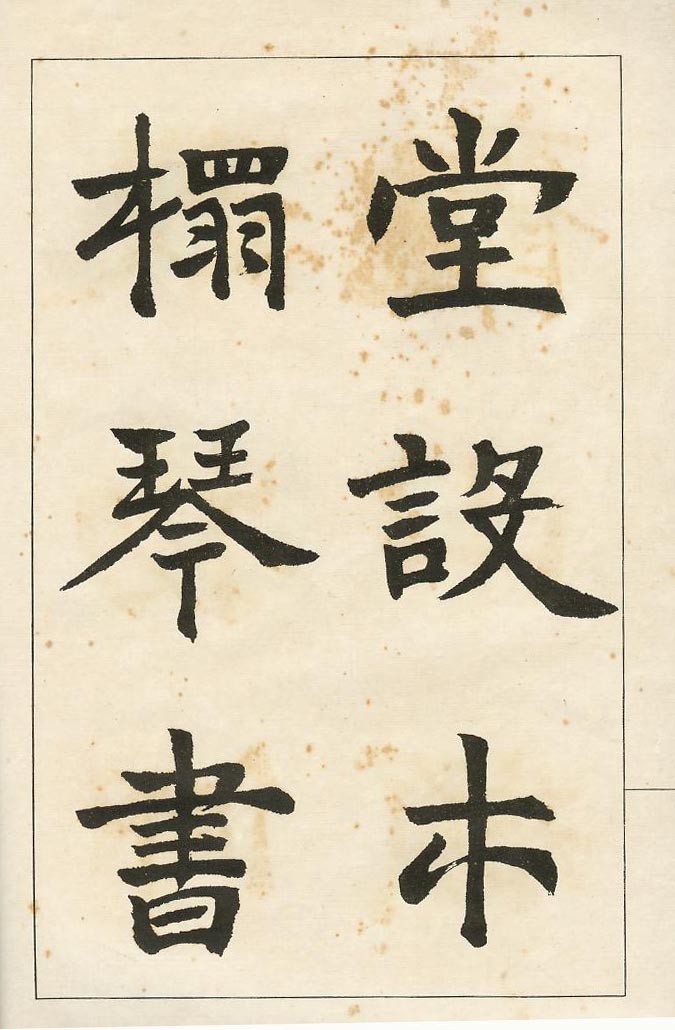 堂設木
榻琴書